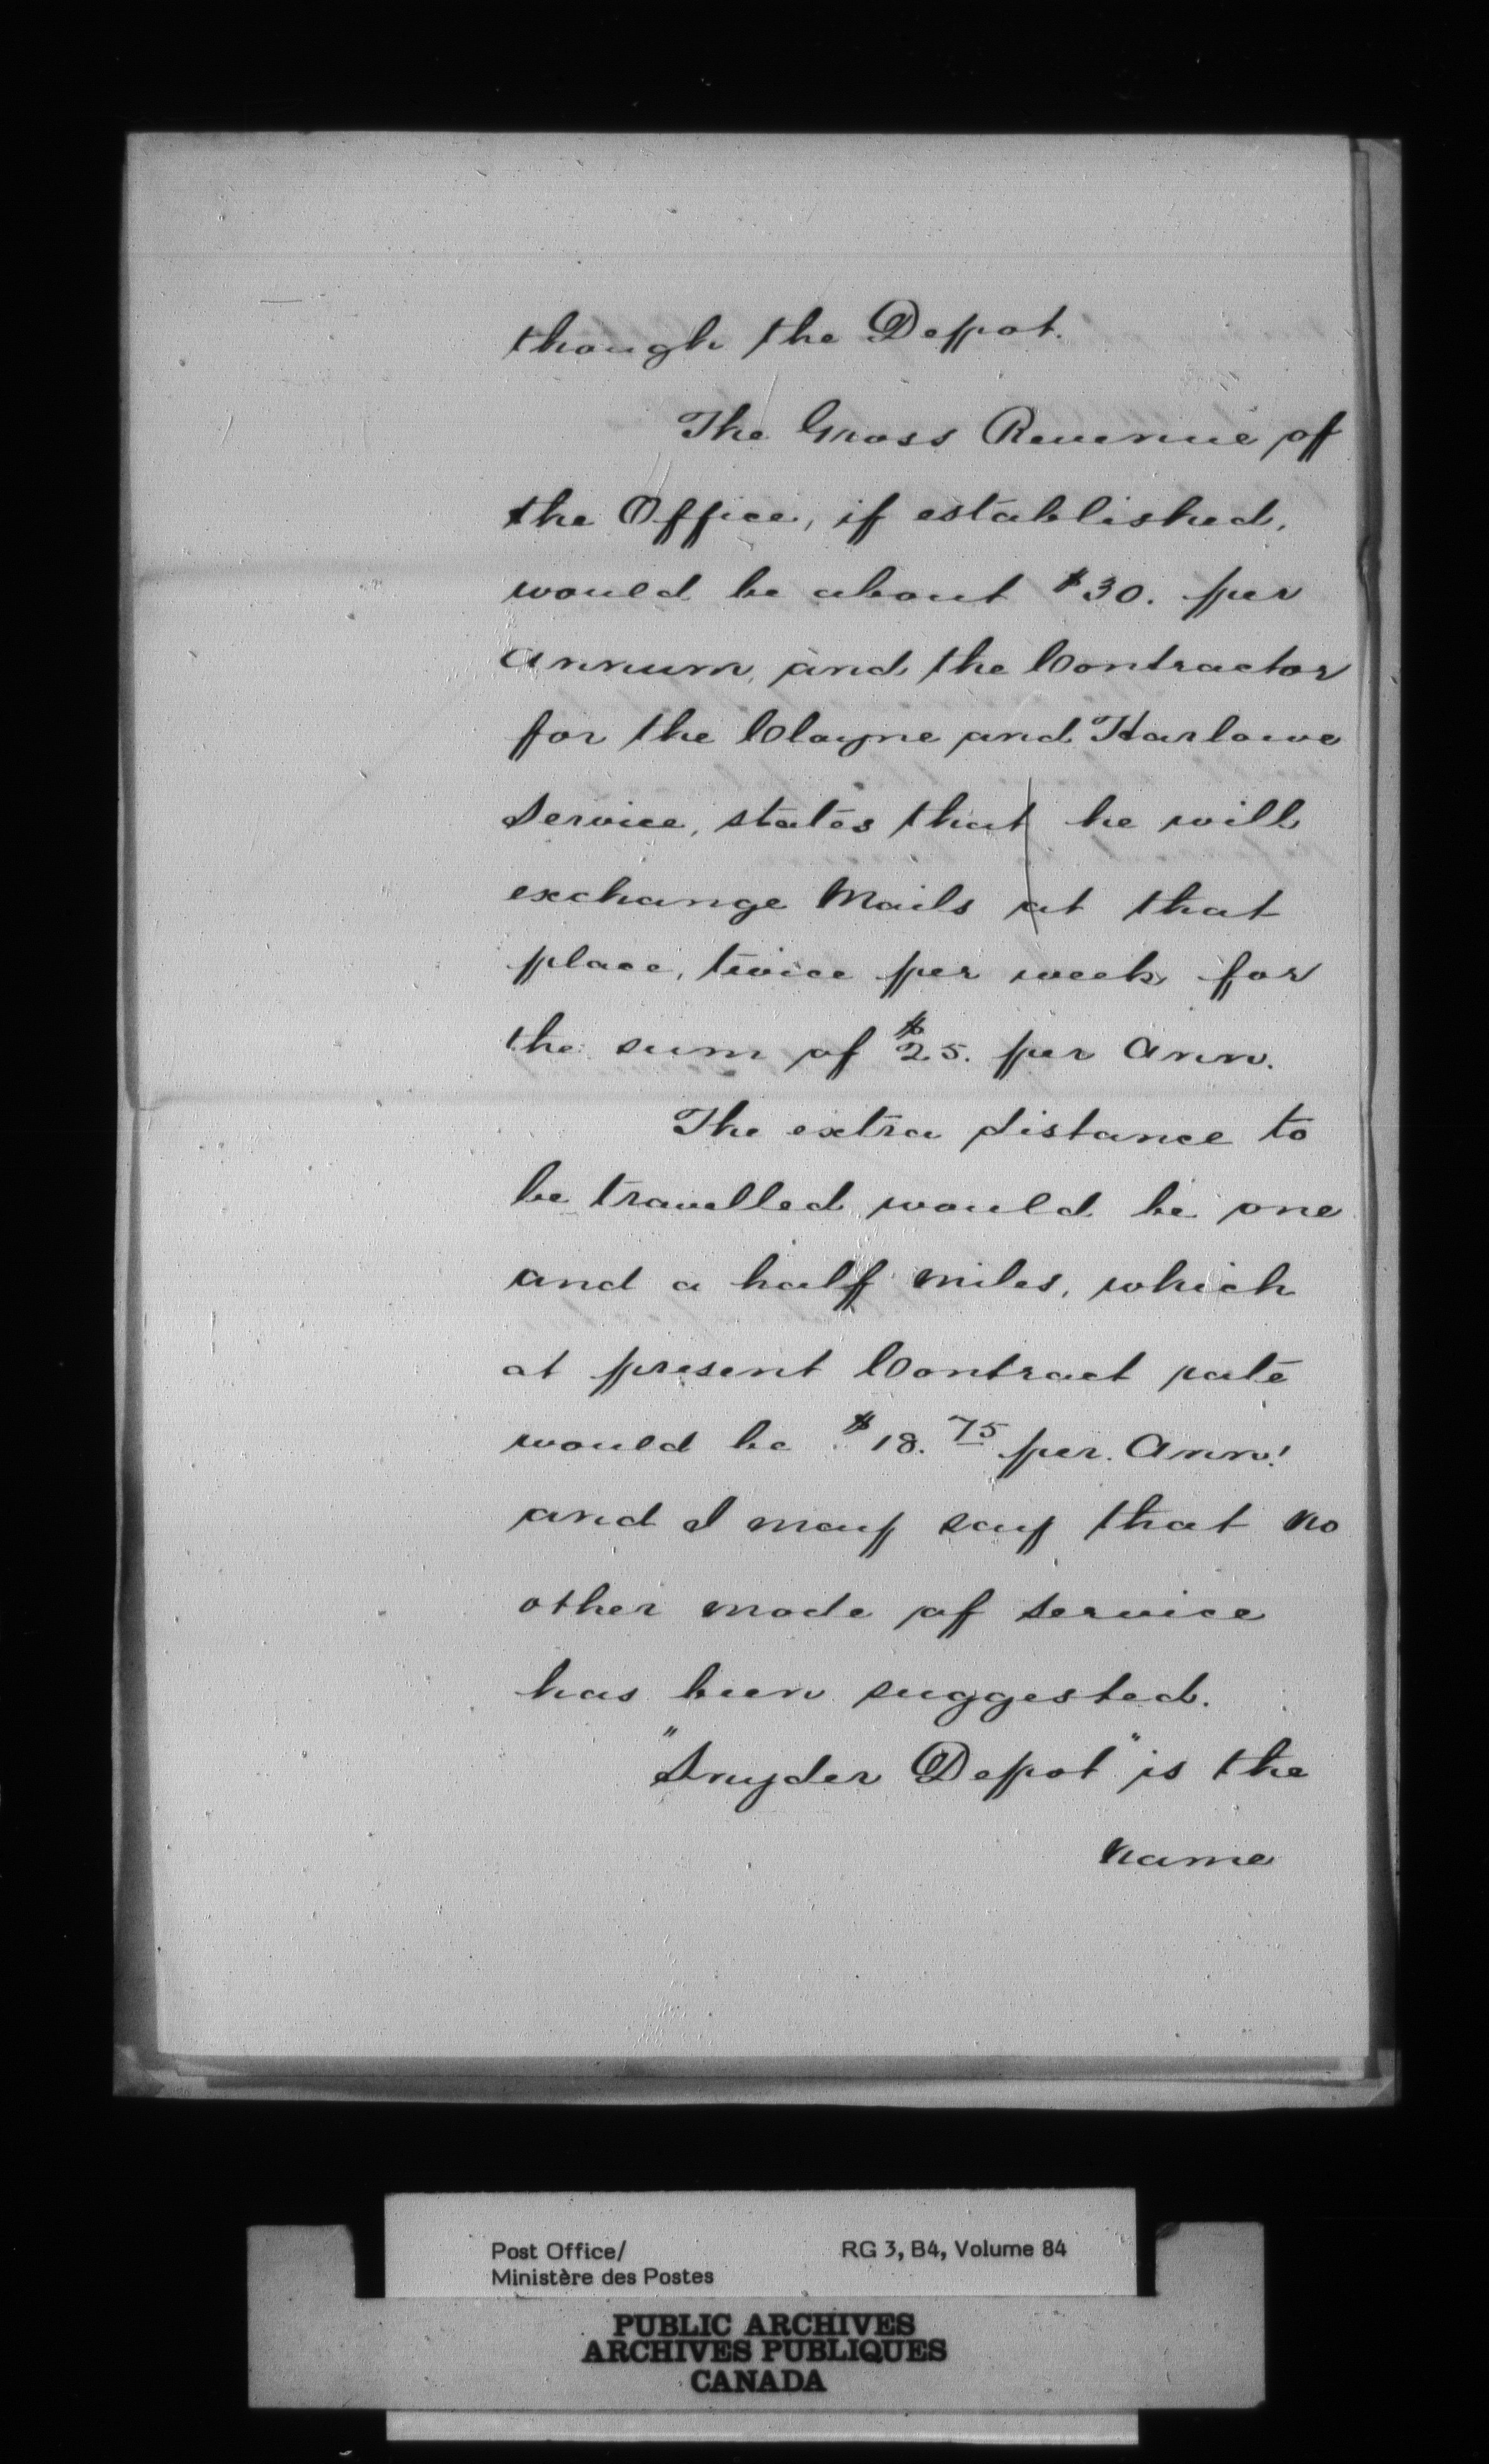 though the Depot.
The Gross Revenue of
the Office, if established,
would be about $30. per
annum, and the Contractor
for the Cloyne and Harlowe
Service, states that he will
exchange Mails at that
place, twice per week for
the sum of $25. per Ann.
The extra distance to
be travelled would be one
and a half miles, which
at present Contract rate
would be $18.75 per. Ann!
and I may say that no
other mode of service
has been suggested.
"Snyder Depot" is the
name
Post Office/
Ministère des Postes
RG 3, B4, Volume 84
PUBLIC ARCHIVES
ARCHIVES PUBLIQUES
CANADA